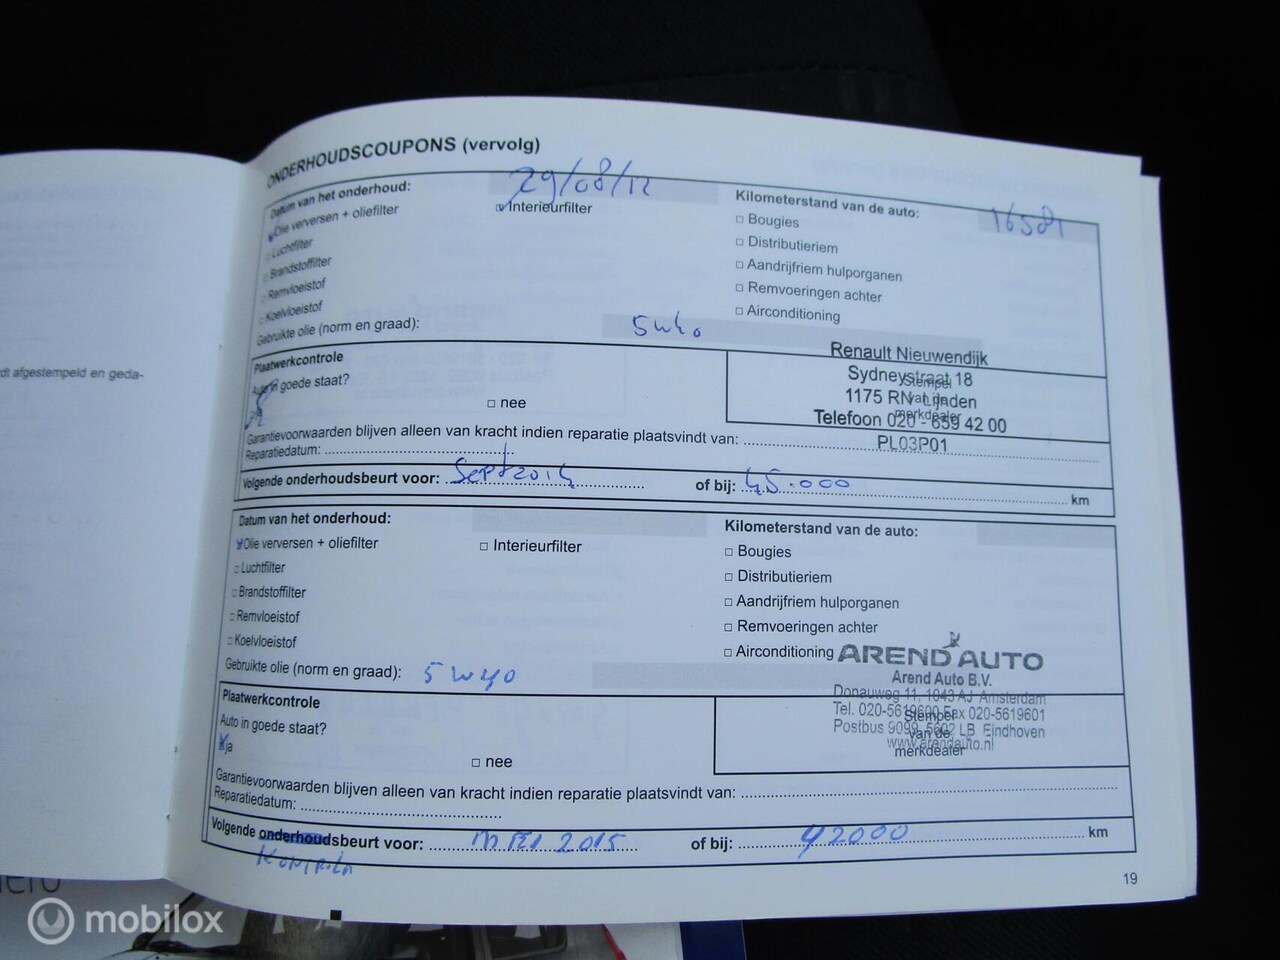 rdt afgestempeld en geda-
ONDERHOUDSCOUPONS (vervolg)
Datum van het onderhoud: 29/08/12
Kilometerstand van de auto: 16581
Olie verversen + oliefilter
Interieurfilter
Luchtfilter
Brandstoffilter
Remvloeistof
Koelvloeistof
Bougies
Distributieriem
Aandrijfriem hulporganen
Remvoeringen achter
Airconditioning
Gebruikte olie (norm en graad): 5w40
Plaatwerkcontrole
Auto in goede staat?
ja
nee
Renault Nieuwendijk
Sydneystraat 18
1175 RN Lijnden
Telefoon 020 - 659 42 00
PL03P01
Stempel
van de
merkdealer
Garantievoorwaarden blijven alleen van kracht indien reparatie plaatsvindt van:
Reparatiedatum:
Volgende onderhoudsbeurt voor: Sept 2014 of bij: 45.000 km
Datum van het onderhoud:
Kilometerstand van de auto:
Olie verversen + oliefilter
Interieurfilter
Luchtfilter
Brandstoffilter
Remvloeistof
Koelvloeistof
Bougies
Distributieriem
Aandrijfriem hulporganen
Remvoeringen achter
Airconditioning
Gebruikte olie (norm en graad): 5w40
Plaatwerkcontrole
Auto in goede staat?
ja
nee
AREND AUTO
Arend Auto B.V.
Donauweg 11, 1043 AJ Amsterdam
Tel. 020-5619600 Fax 020-5619601
Postbus 9099, 5602 LB Eindhoven
www.arendauto.nl
Stempel
van de
merkdealer
Garantievoorwaarden blijven alleen van kracht indien reparatie plaatsvindt van:
Reparatiedatum:
Volgende onderhoudsbeurt voor: MEI 2015 of bij: 42000 km
19
mobilox